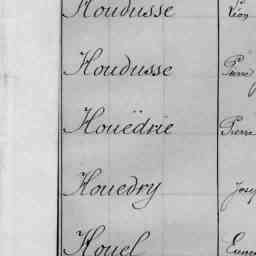 Houdusse Léon
Houdusse Pierre
Houëdrie Pierre
Houedry
Houel